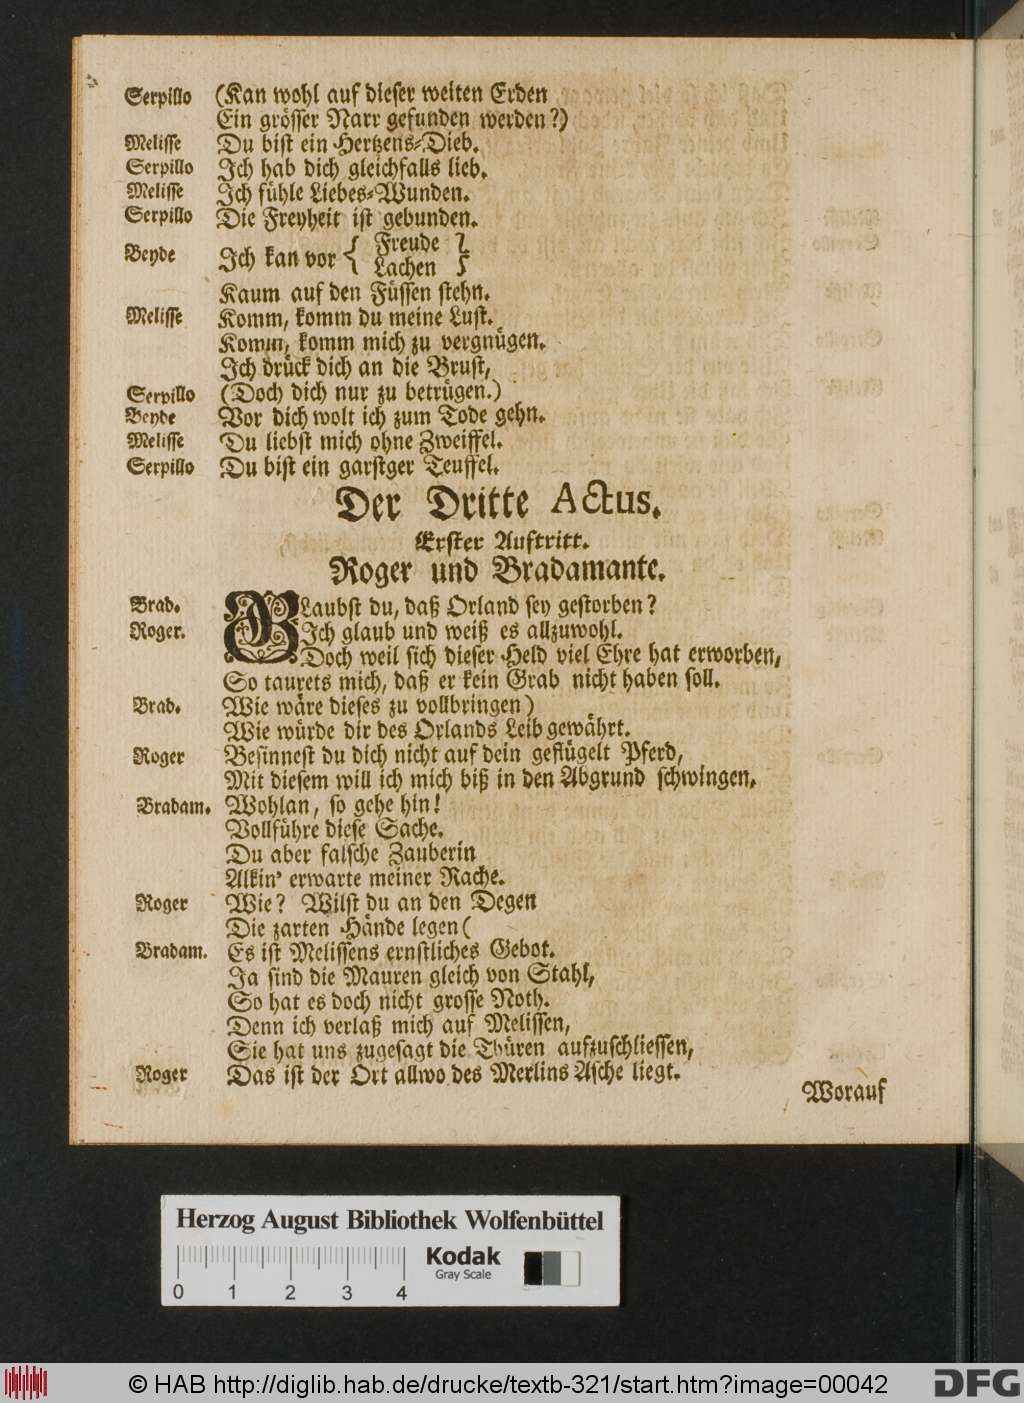 Serpillo (Kan wohl auf dieser weiten Erden
Ein grösser Narr gefunden werden?)
Melisse Du bist ein Hertzens-Dieb.
Serpillo Ich hab dich gleichfalls lieb.
Melisse Ich fühle Liebes-Wunden.
Serpillo Die Freyheit ist gebunden.
Beyde Ich kan vor { Freude }
{ Lachen }
Kaum auf den Füssen stehn.
Melisse Komm, komm du meine Lust.
Komm, komm mich zu vergnügen.
Ich drück dich an die Brust,
Serpillo (Doch dich nur zu betrügen.)
Beyde Vor dich wolt ich zum Tode gehn.
Melisse Du liebst mich ohne Zweiffel.
Serpillo Du bist ein garstger Teuffel.
Der Dritte Actus.
Erster Auftritt.
Roger und Bradamante.
Brad. GLaubst du, daß Orland sey gestorben?
Roger. Ich glaub und weiß es allzuwohl.
Doch weil sich dieser Held viel Ehre hat erworben,
So taurets mich, daß er kein Grab nicht haben soll.
Brad. Wie wäre dieses zu vollbringen)
Wie würde dir des Orlands Leib gewährt.
Roger Besinnest du dich nicht auf dein geflügelt Pferd,
Mit diesem will ich mich biß in den Abgrund schwingen.
Bradam. Wohlan, so gehe hin!
Vollführe diese Sache.
Du aber falsche Zauberin
Alkin' erwarte meiner Rache.
Roger Wie? Wilst du an den Degen
Die zarten Hände legen(
Bradam. Es ist Melissens ernstliches Gebot.
Ja sind die Mauren gleich von Stahl,
So hat es doch nicht grosse Noth.
Denn ich verlaß mich auf Melissen,
Sie hat uns zugesagt die Thüren aufzuschliessen,
Roger Das ist der Ort allwo des Merlins Asche liegt.
Worauf
Herzog August Bibliothek Wolfenbüttel
Kodak
Gray Scale
0 1 2 3 4
© HAB http://diglib.hab.de/drucke/textb-321/start.htm?image=00042
DFG